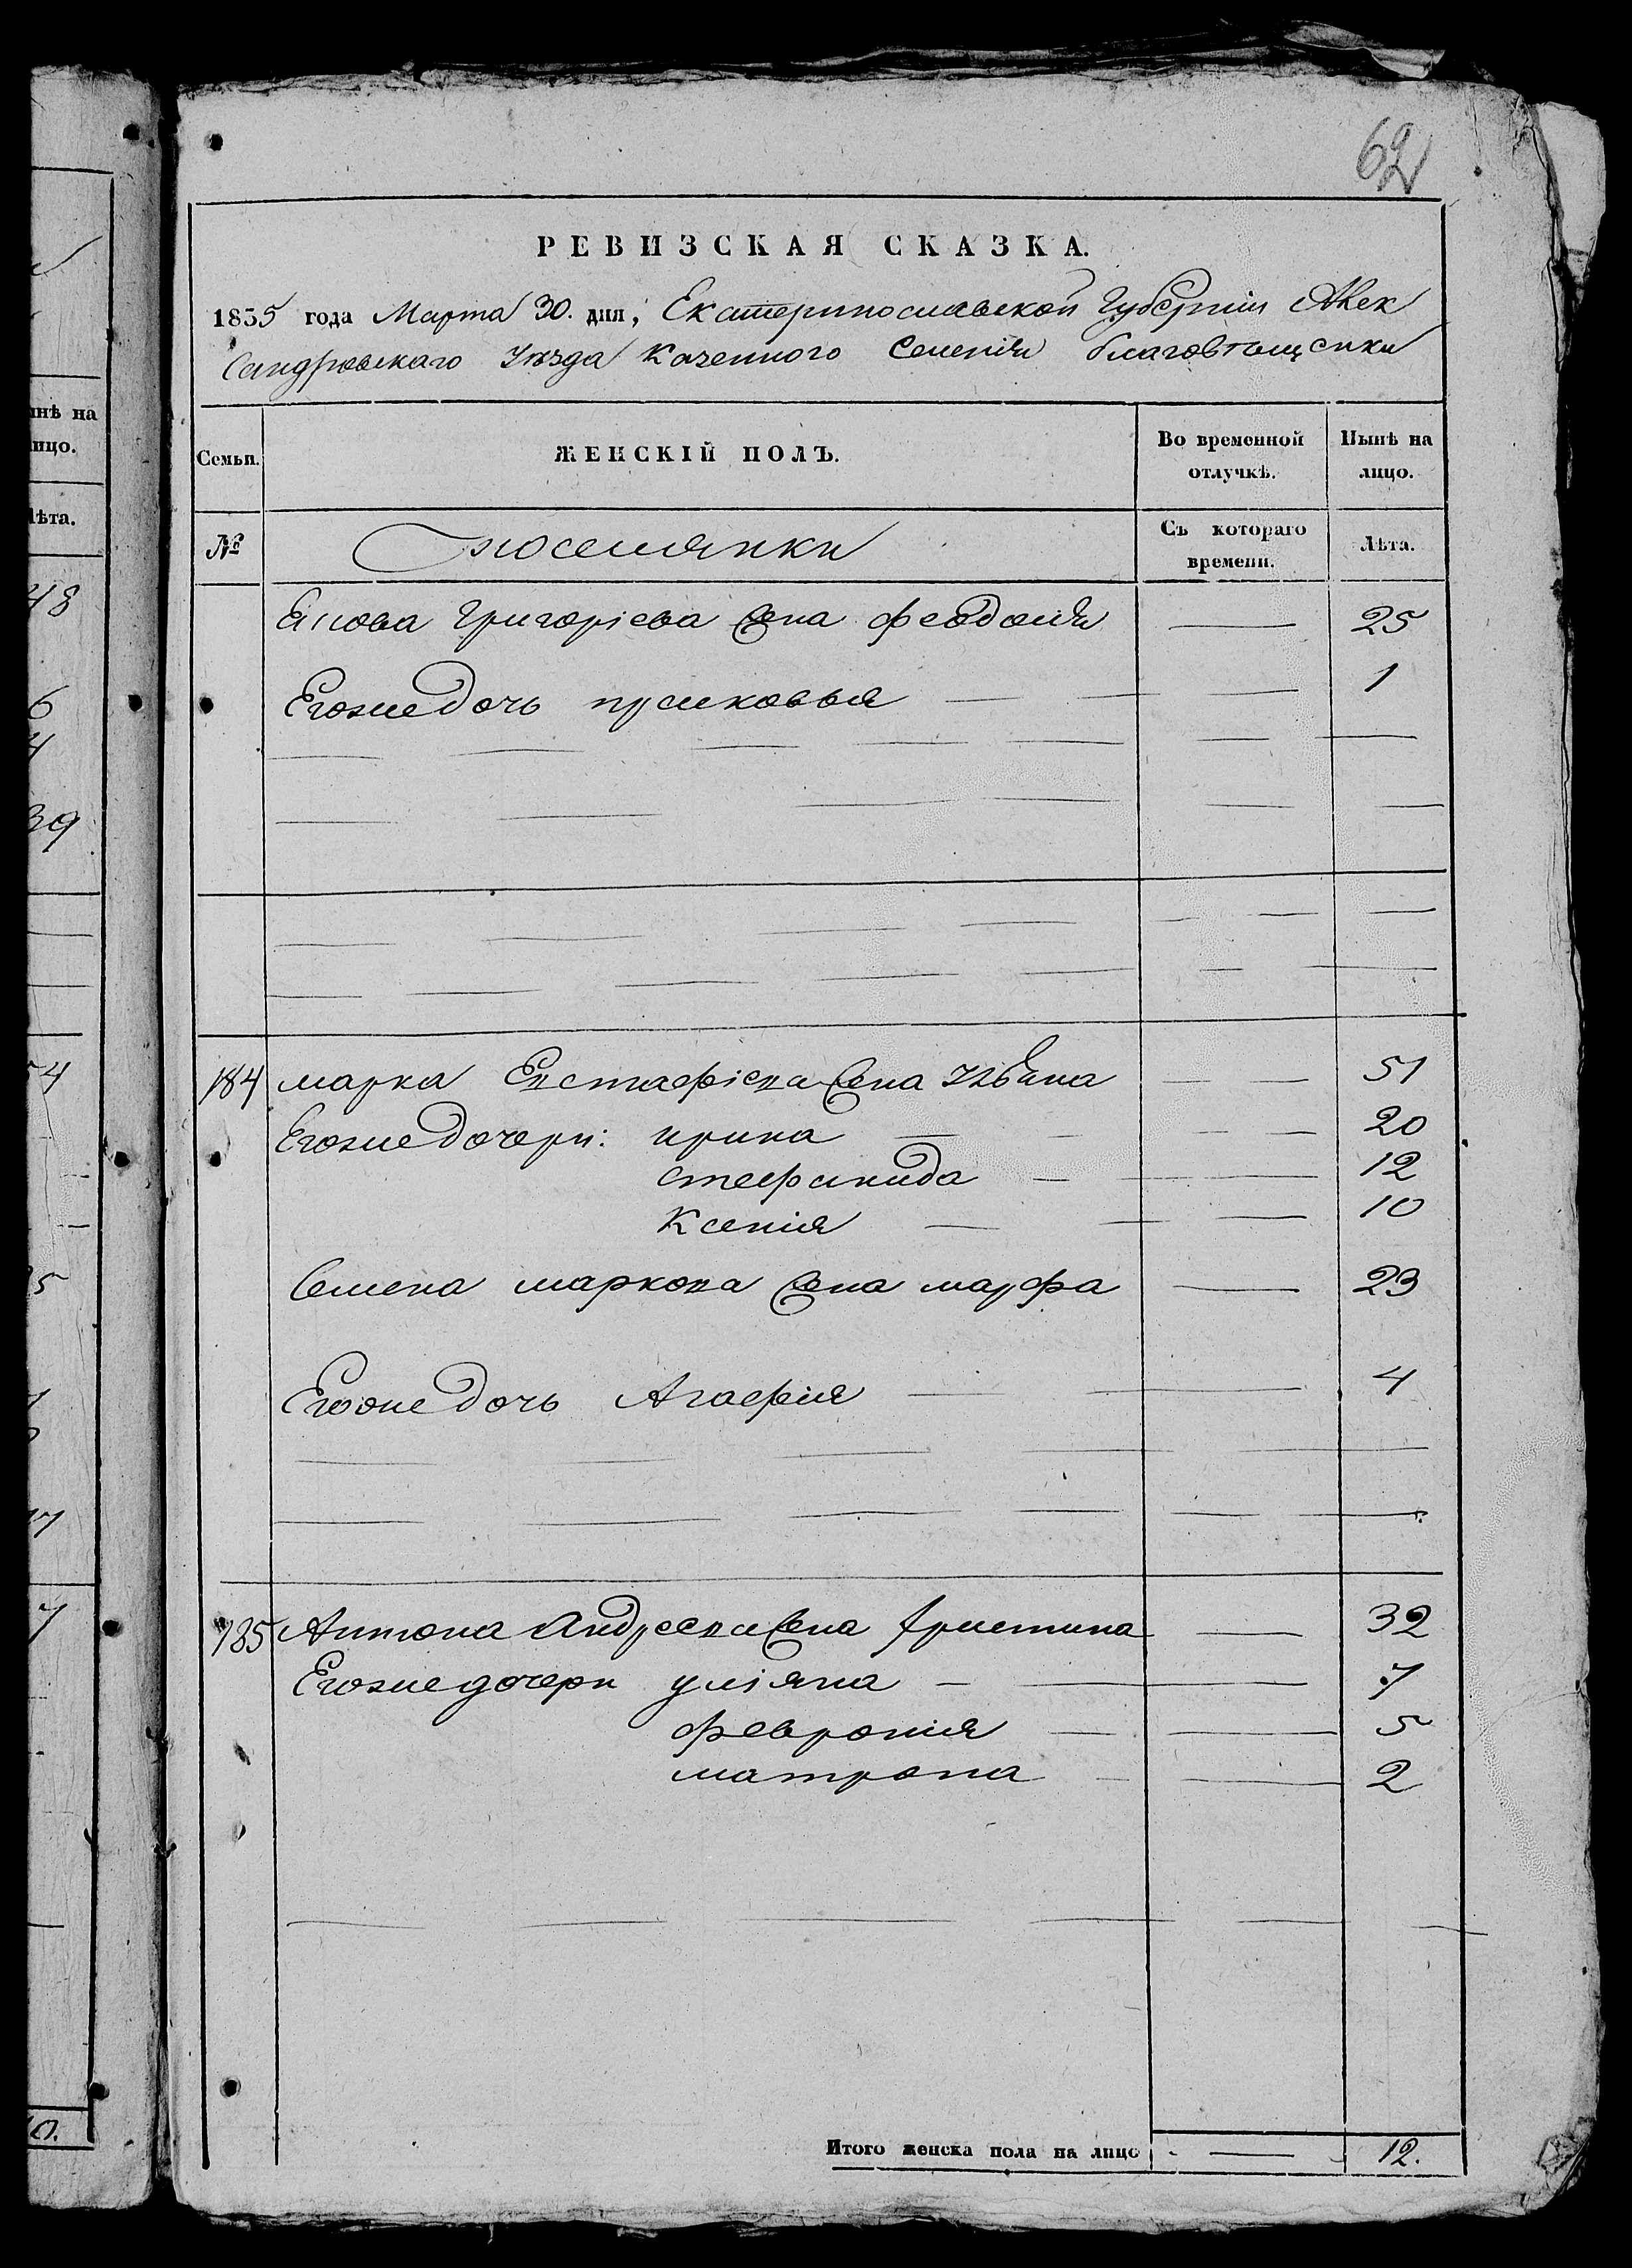 62
РЕВИЗСКАЯ СКАЗКА.
1835 года Марта 30. дня, Екатеринославской Губерніи Алек
сандровскаго Уѣзда Казенного Селенія благовѣщенки
Семьи. ЖЕНСКІЙ ПОЛЪ. Во временной отлучкѣ. Нынѣ на лицо.
№ поселянки Съ котораго времени. Лѣта.
Григоріева жена феодосія 25
Егоже дочь прасковья 1
184 марка Евстафіева жена 51
Егоже дочери: ирина 20
стефанида 12
Ксенія 10
Семена маркова жена марфа 23
Егоже дочь Агафія 4
185 Антона Андреева жена христина 32
Егоже дочери уліяна 7
февронія 5
матрона 2
Итого женска пола на лицо 12.
нѣ на
ицо.
ѣта.
48
6
4
39
54
5
7
7
0.